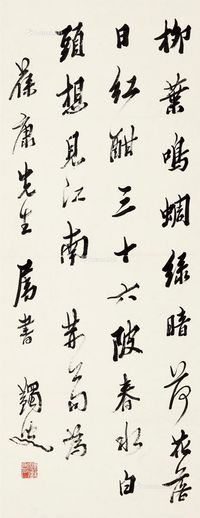 柳葉鳴蜩綠暗荷花落
日紅酣三十六陂春水白
頭想見江南 荊公句為
葆康先生屬書 蠲叟